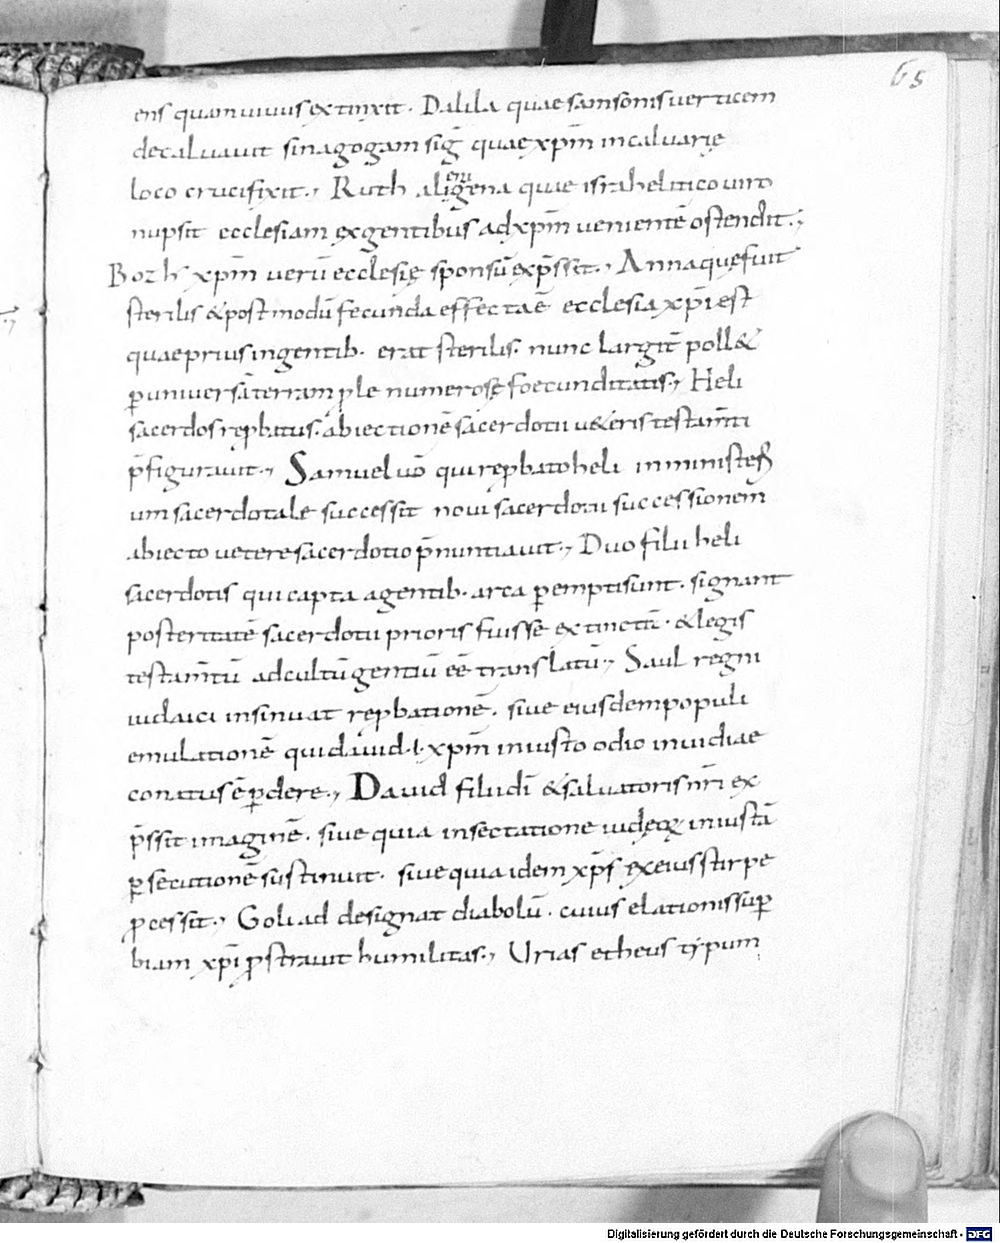 65
ens quam uiuus extinxit. Dalila quae samsonis uerticem
decaluauit sinagogam sig̅ quae xp̅m in caluarię
loco crucifixit., Ruth aligena quae israhelitico uiro
eni
nupsit ecclesiam ex gentibus ad xp̅m uenientē ostendit.,
Bozh xp̅m uerū ecclesię sponsū exp̅ssit., Anna quę fuit
sterilis & postmodū fecunda effecta ē ecclesia xp̅i est
quae prius in gentib. erat sterilis. nunc largit̅ poll&
p̱ uniuersā terram ꝓle numerosę foecunditatis., Heli
sacerdos reꝓbatus. abiectionē sacerdotii u&eris testam̅ti
p̅figurauit., Samuel uō qui reꝓbato heli in ministeri
um sacerdotale successit noui sacerdotii successionem
abiecto uetere sacerdotio p̅nuntiauit., Duo filii heli
sacerdotis qui capta a gentib. arca ꝑempti sunt. signant
posteritatē sacerdotii prioris fuisse extinctā. & legis
testam̅tū ad cultū gentiū eē translatū., Saul regni
iudaici insinuat reꝓbationē. siue eiusdem populi
emulationē qui dauid .i. xp̅m iniusto odio inuidiae
conatus ē ꝑdere., Dauid filii di̅ & saluatoris n̅ri ex
p̅ssit imaginē. siue quia insectatione iudęoꝝ iniustā
ꝑsecutionē sustinuit. siue quia idem xp̅s ex eius stirpe
ꝓcessit., Goliad designat diabolū. cuius elationis suꝑ
biam xp̅i ꝓstrauit humilitas., Urias etheus typum
Digitalisierung gefördert durch die Deutsche Forschungsgemeinschaft - DFG